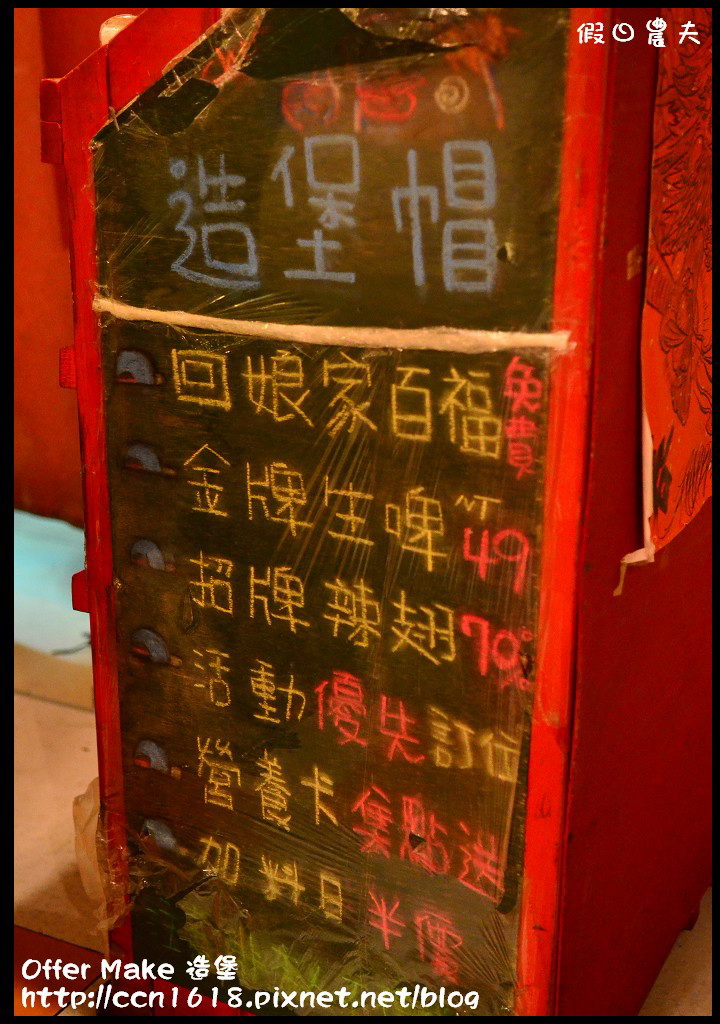 假日農夫
造堡帽
回娘家百福免費
金牌生啤NT49
招牌辣翅70%
活動優先訂位
營養卡集點送
加料日半價
Offer Make 造堡
http://ccn1618.pixnet.net/blog